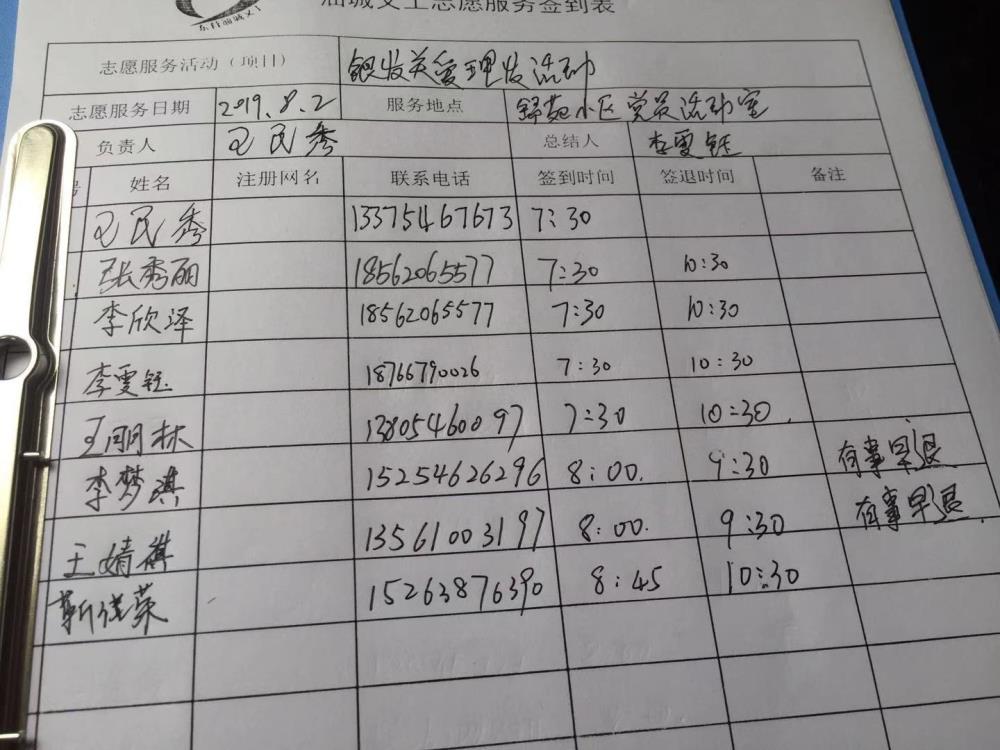 油城义工志愿服务签到表
志愿服务活动（项目） 银发关爱理发活动
志愿服务日期 2019.8.2 服务地点 舒苑小区党员活动室
负责人 王民秀 总结人 李雯钰
号 姓名 注册网名 联系电话 签到时间 签退时间 备注
王民秀 13375467673 7:30
张秀丽 18562065577 7:30 10:30
李欣泽 18562065577 7:30 10:30
李雯钰 18766790026 7:30 10:30
王丽林 13805460097 7:30 10:30.
李梦淇 15254626296 8:00. 9:30 有事早退
王婧祺 13561003197 8:00. 9:30 有事早退.
靳继荣 15263876390 8:45 10:30